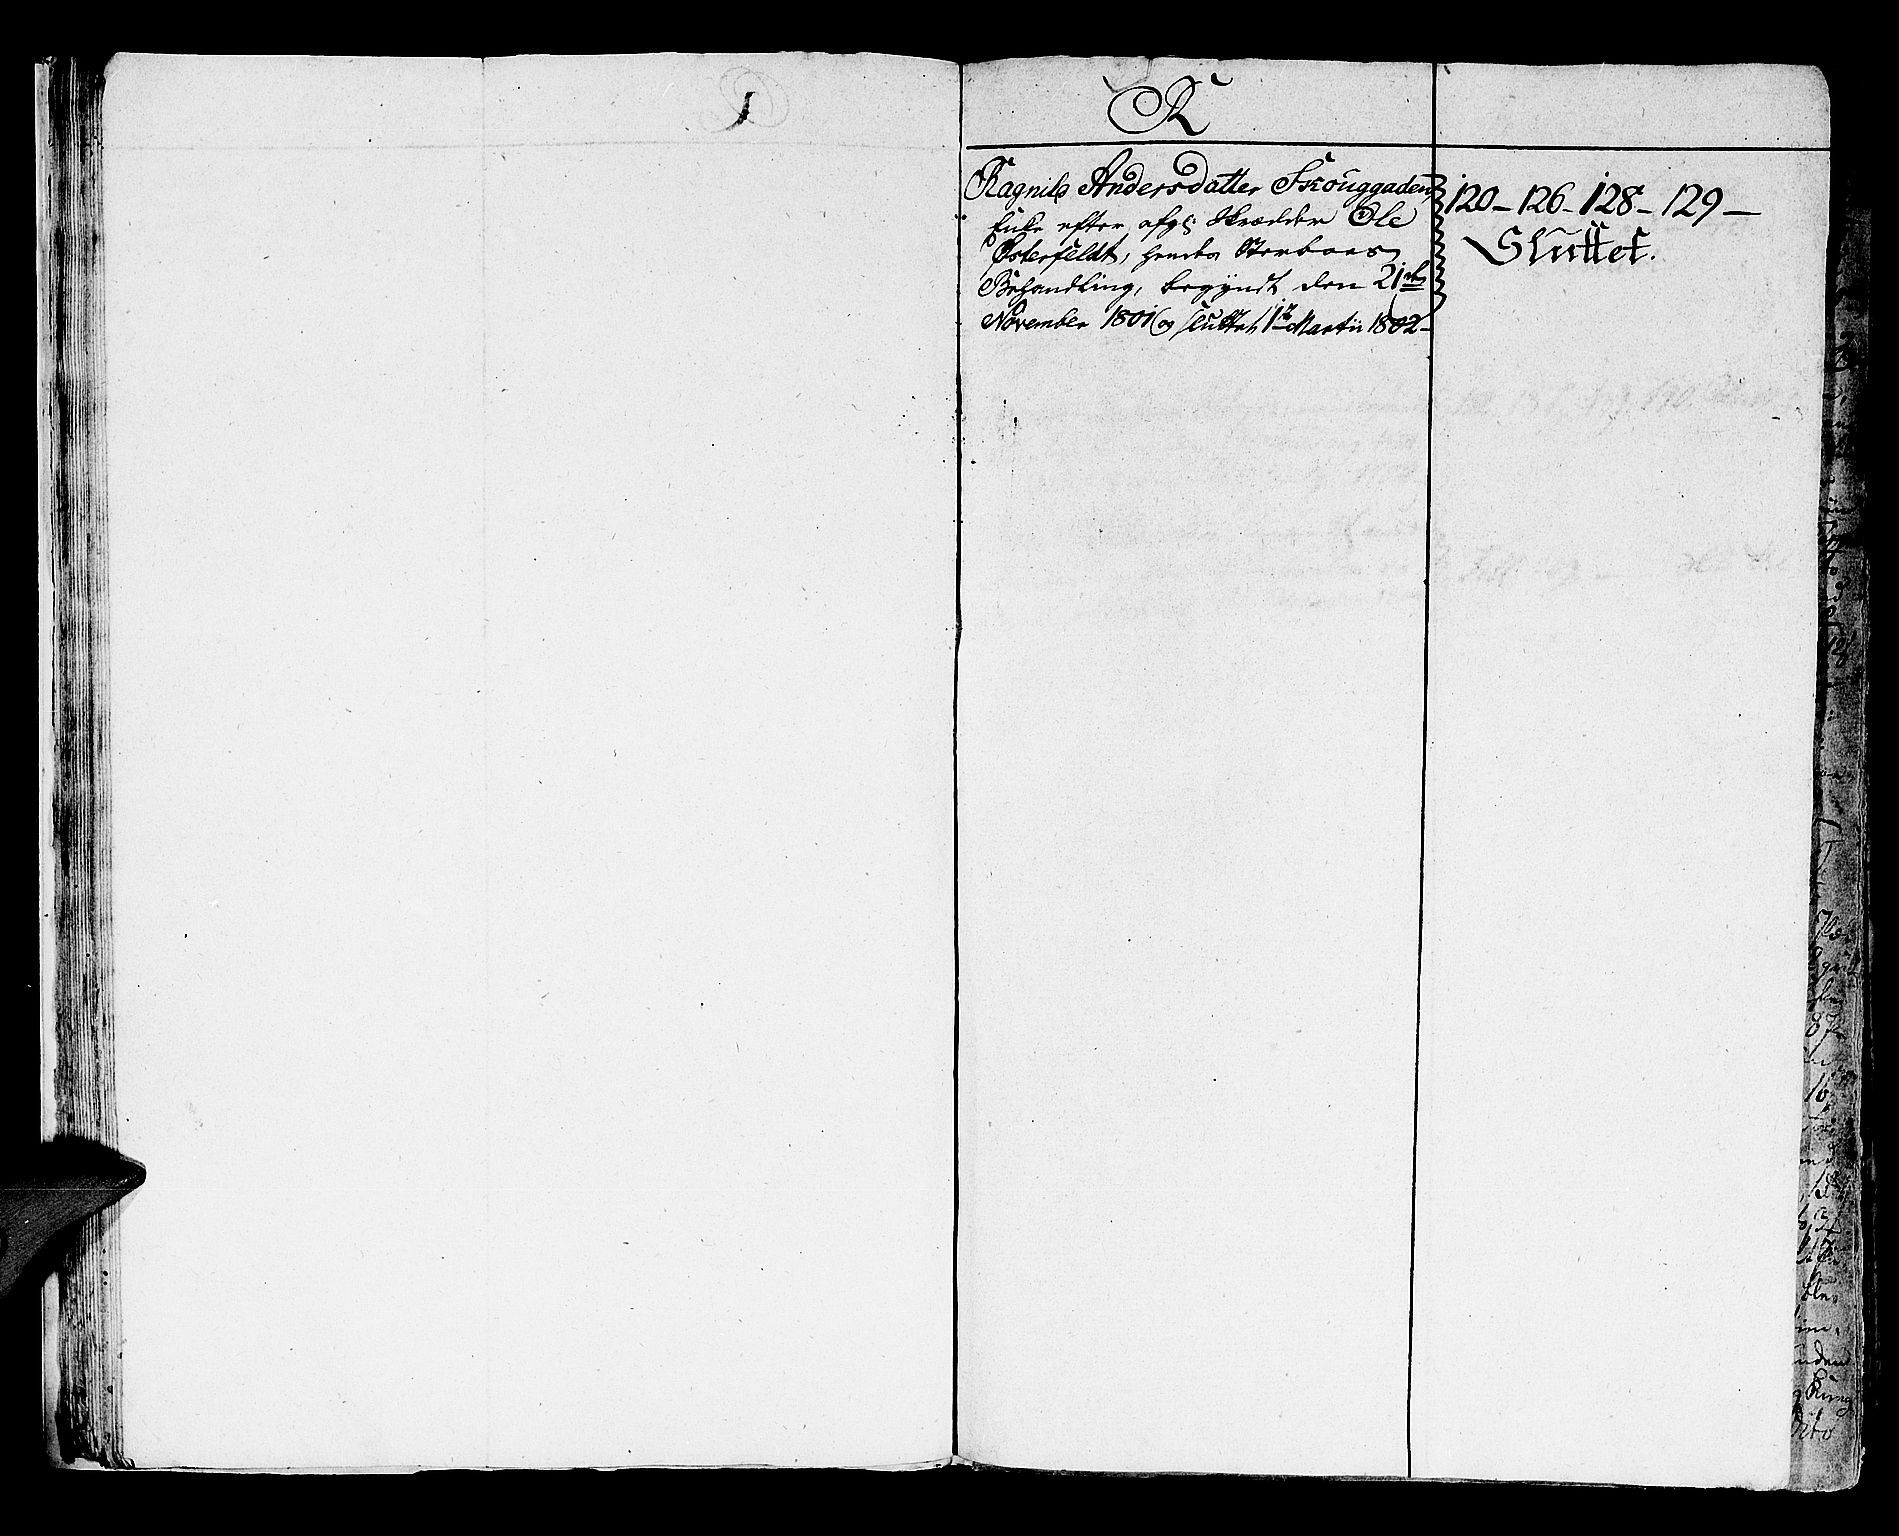 R
Ragnild Andersdatter Skouggaden,
Enke efter afg: Skrædder Ole
Østerfeldt, hendes Sterboes
Behandling, begyndt den 21de
November 1801 og sluttet 12 Martii 1802-
120 - 126 - 128 - 129 -
Sluttet.